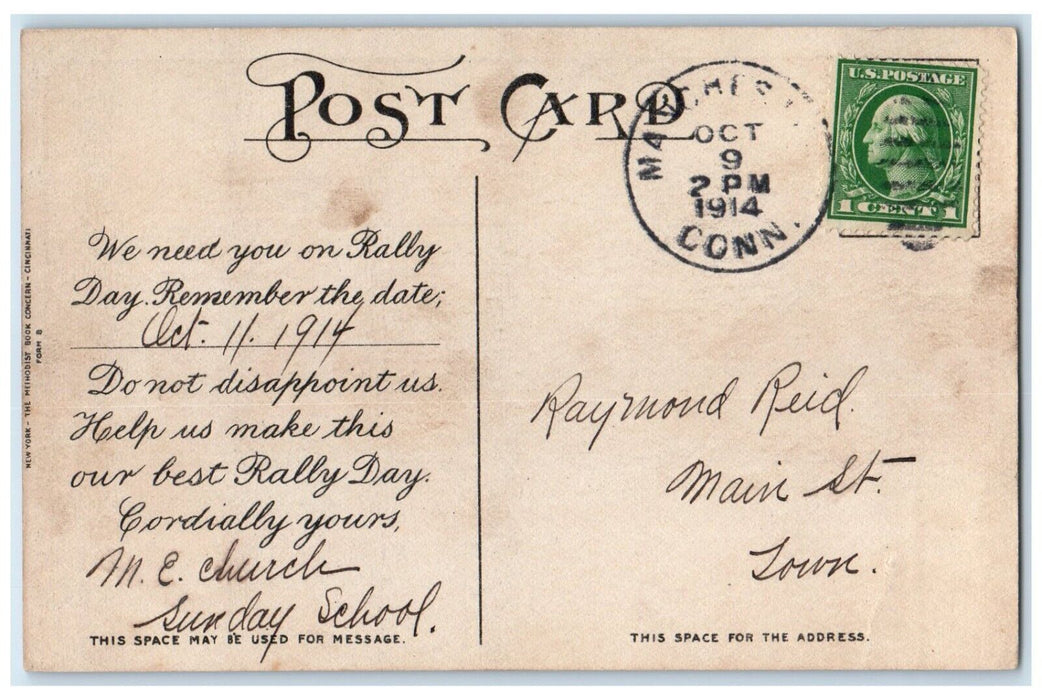 POST CARD
U.S. POSTAGE
1 CENT 1
MANCHEST
OCT
9
2 PM
1914
CONN.
We need you on Rally
Day. Remember the date;
Oct. 11. 1914
Do not disappoint us.
Help us make this
our best Rally Day.
Cordially yours,
M. E. church
Sunday School.
THIS SPACE MAY BE USED FOR MESSAGE.
NEW YORK - THE METHODIST BOOK CONCERN - CINCINNATI
FORM B
Raymond Reid.
Main St.
Town.
THIS SPACE FOR THE ADDRESS.